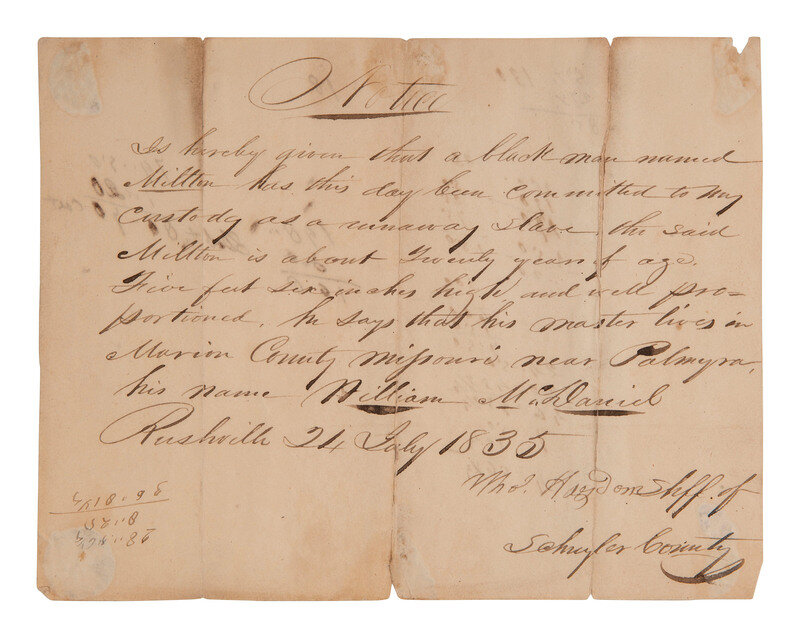 Notice
Is hereby given that a black man named
Millton has this day been committed to my
custody as a runaway slave, the said
Millton is about Twenty years of age.
Five feet six inches high and well pro=
portioned, he says that his master lives in
Marion County Missouri near Palmyra,
his name William McDaniel
Rushville 24 July 1835
Thos. Haydon Shff. of
Schuyler County